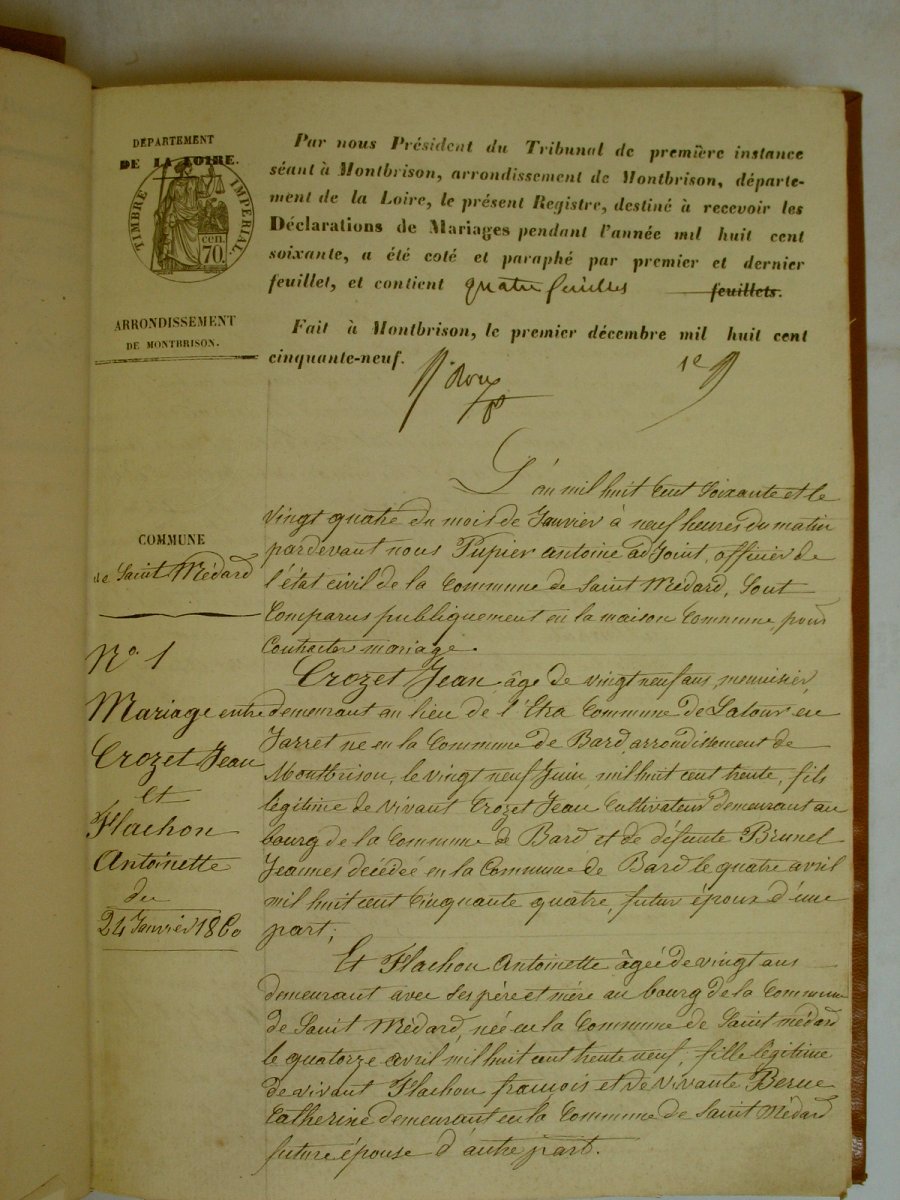 DÉPARTEMENT
DE LA LOIRE.
TIMBRE IMPERIAL.
cen.
70.
ARRONDISSEMENT
DE MONTBRISON.
Par nous Président du Tribunal de première instance
séant à Montbrison, arrondissement de Montbrison, départe-
ment de la Loire, le présent Registre, destiné à recevoir les
Déclarations de Mariages pendant l'année mil huit cent
soixante, a été coté et paraphé par premier et dernier
feuillet, et contient quatre feuilles feuillets.
Fait à Montbrison, le premier décembre mil huit cent
cinquante-neuf.
1e
COMMUNE
de Saint Médard
No 1
Mariage entre
Crozet Jean
et
Flachon
Antoinette
du
24 Janvier 1860
L'an mil huit cent soixante et le
vingt quatre du mois de Janvier à neuf heures du matin
pardevant nous Pupier antoine adjoint, officier de
l'état civil de la Commune de Saint Médard, Sont
Comparus publiquement en la maison Commune, pour
Contracter mariage.
Crozet Jean, âgé de vingt neuf ans, menuisier,
demeurant au lieu de l'Etra Commune de Latour en
Jarret né en la Commune de Bard, arrondissement de
Montbrison, le vingt neuf Juin, mil huit cent trente, fils
légitime de vivant Crozet Jean Cultivateur demeurant au
bourg de la Commune de Bard et de défunte Brunel
Jeannes décédée en la Commune de Bard le quatre avril
mil huit cent Cinquante quatre, futur époux d'une
part;
Et Flachon Antoinette âgée de vingt ans
demeurant avec ses père et mère au bourg de la Commune
de Saint Médard, née en la Commune de Saint médard
le quatorze avril mil huit cent trente neuf, fille légitime
de vivant Flachon françois et de vivante Berne
Catherine demeurant en la Commune de Saint Médard
future épouse d'autre part.